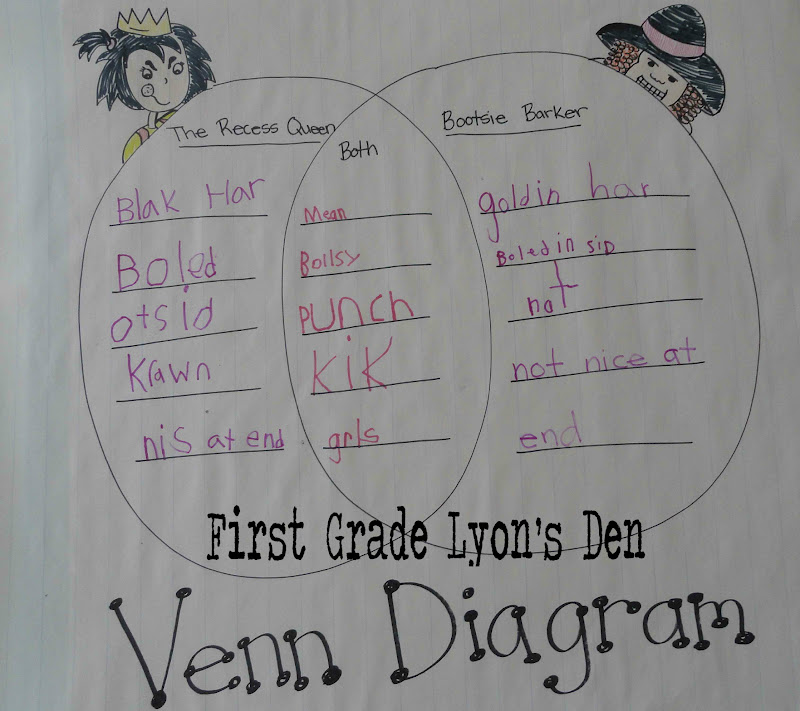 The Recess Queen
Both
Bootsie Barker
Blak Har
Boled
otsid
Krawn
nis at end
Mean
Bollsy
Punch
Kik
grls
goldin har
Boled in sid
hat
not nice at
end
First Grade Lyon's Den
Venn Diagram